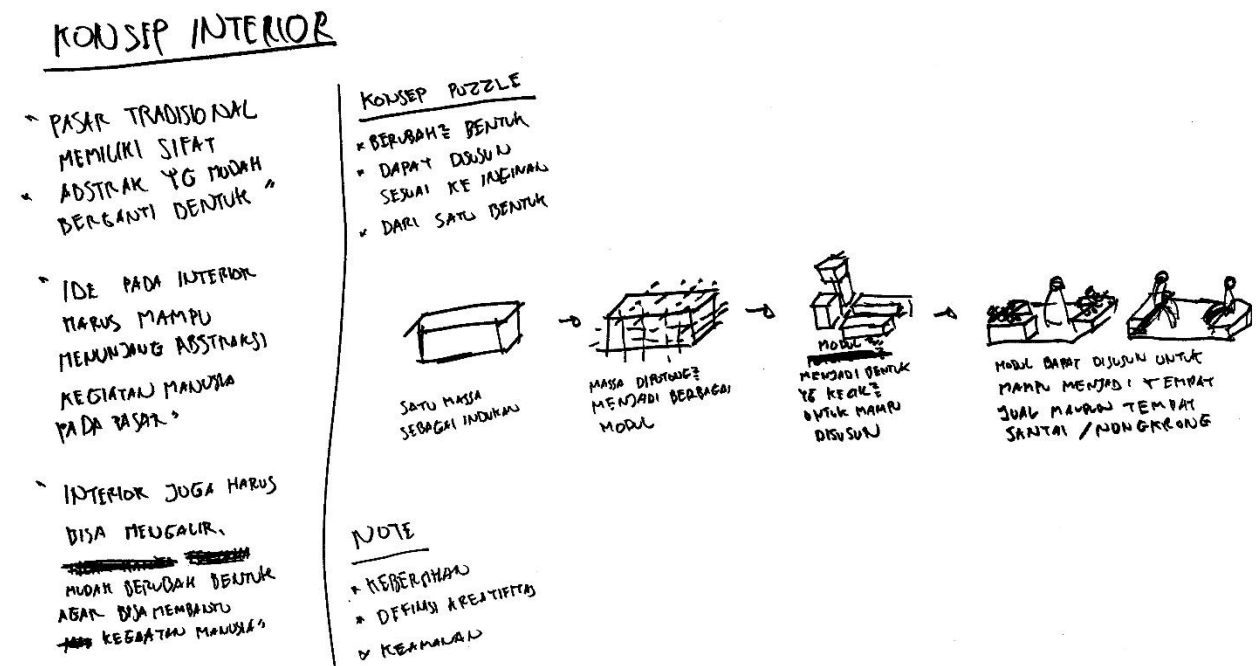 KONSEP INTERIOR
" PASAR TRADISIONAL
MEMILIKI SIFAT
" ABSTRAK YG MUDAH
BERGANTI BENTUK "
" IDE PADA INTERIOR
HARUS MAMPU
MENUNJANG ABSTRAKSI
KEGIATAN MANUSIA
PADA PASAR "
" INTERIOR JUGA HARUS
BISA MENGALIR,
MUDAH BERUBAH BENTUK
AGAR BISA MEMBANTU
KEGIATAN MANUSIA "
KONSEP PUZZLE
* BERUBAH2 BENTUK
* DAPAT DISUSUN
SESUAI KEINGINAN
* DARI SATU BENTUK
SATU MASSA
SEBAGAI INDUKAN
MASSA DIPOTONG2
MENJADI BERBAGAI
MODUL
MODUL
MENJADI BENTUK
YG KECIL2
UNTUK MAMPU
DISUSUN
MODUL DAPAT DISUSUN UNTUK
MAMPU MENJADI TEMPAT
JUAL MAUPUN TEMPAT
SANTAI / NONGKRONG
NOTE
* KEBERSIHAN
* DEFINISI KREATIFITAS
* KEAMANAN